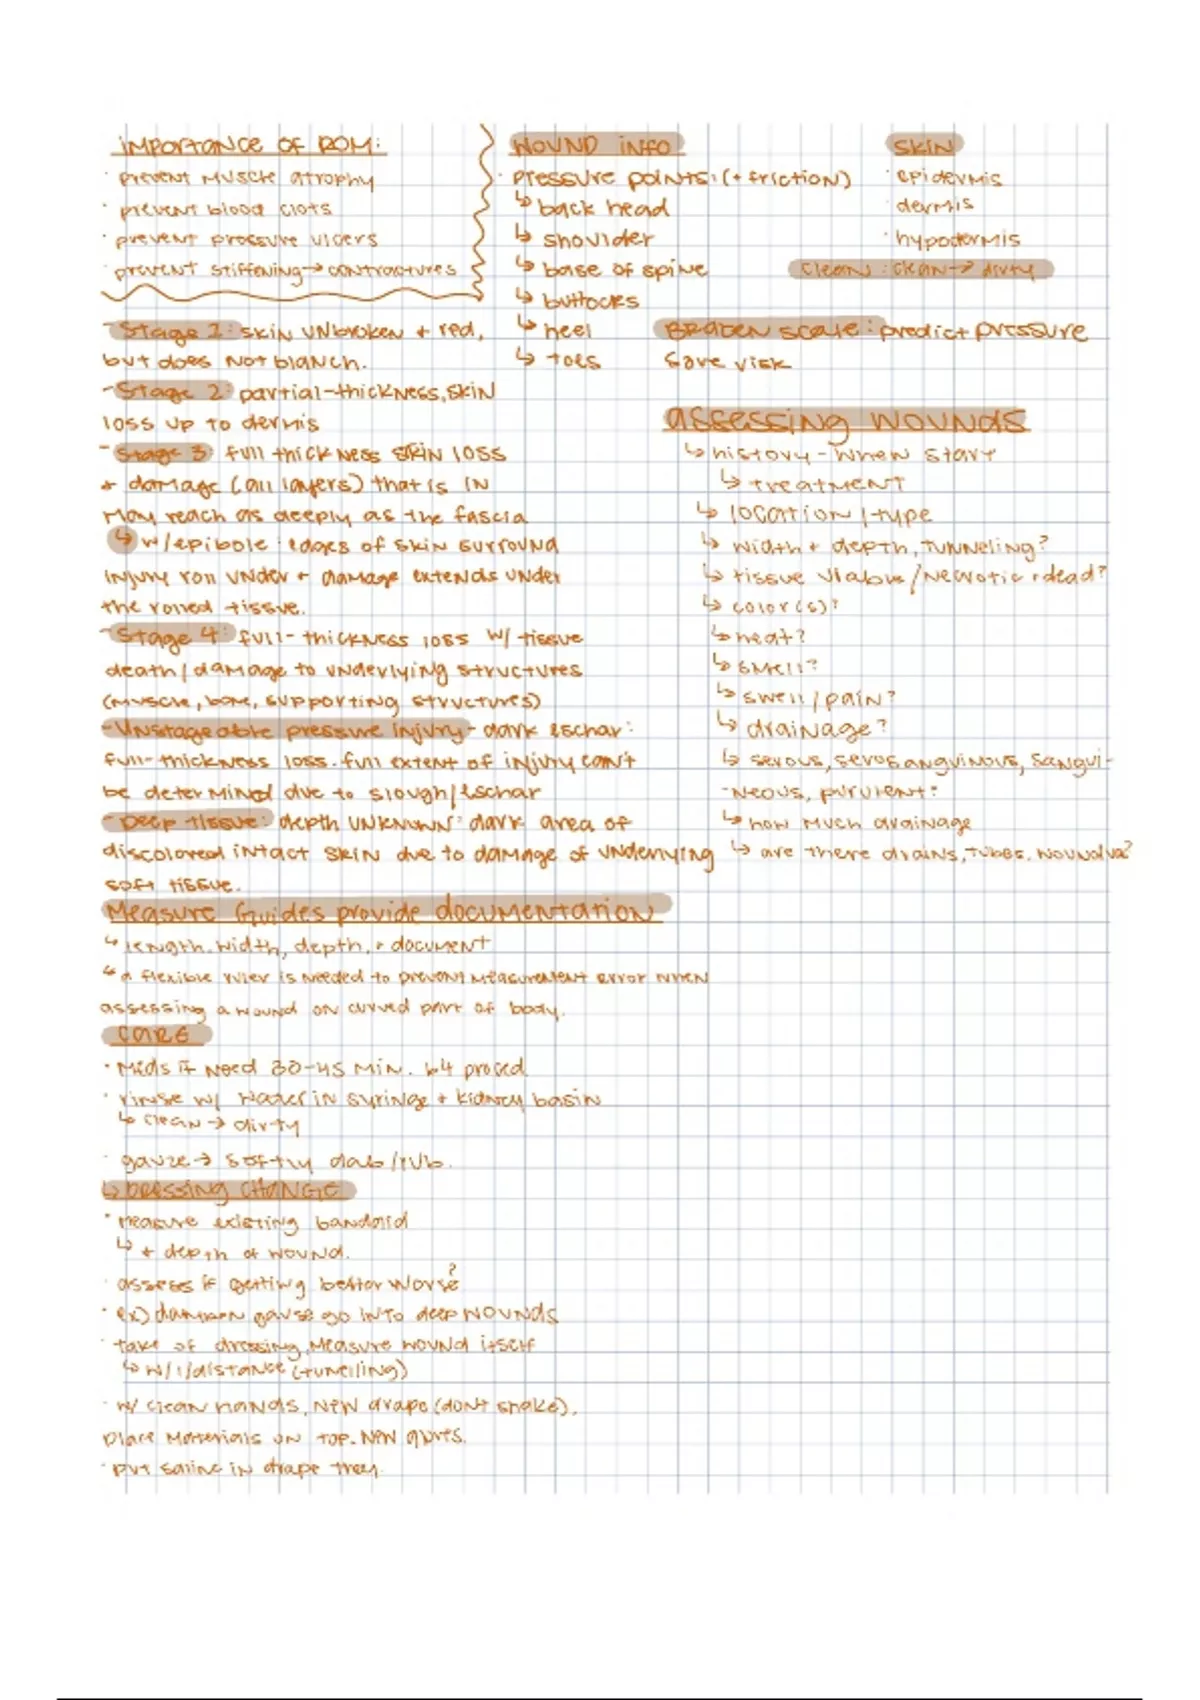 importance of ROM:
· prevent muscle atrophy
· prevent blood clots
· prevent pressure ulcers
· prevent stiffening → contractures
WOUND info
· pressure points: (+ friction)
↳ back head
↳ shoulder
↳ base of spine
↳ buttocks
↳ heel
↳ toes
SKIN
· epidermis
· dermis
· hypodermis
Clean: clean → dirty
Braden scale: predict pressure
sore risk
- Stage 1: skin unbroken + red,
but does not blanch.
- Stage 2: partial-thickness, skin
loss up to dermis
- Stage 3 full thickness skin loss
+ damage (all layers) that is in
may reach as deeply as the fascia
↳ w/epibole: edges of skin surround
injury roll under + damage extends under
the rolled tissue.
- Stage 4: full-thickness loss w/ tissue
death/damage to underlying structures
(muscle, bone, supporting structures)
- Unstageable pressure injury - dark eschar:
full-thickness loss. full extent of injury can't
be determined due to slough/eschar
- Deep tissue: depth unknown: dark area of
discolored intact skin due to damage of underlying
soft tissue.
assessing wounds
↳ history - when start
↳ treatment
↳ location/type
↳ width + depth, tunneling?
↳ tissue viable/necrotic + dead?
↳ color(s)?
↳ heat?
↳ smell?
↳ swell/pain?
↳ drainage?
↳ serous, serosanguinous, sangui-
neous, purulent?
↳ how much drainage
↳ are there drains, tubes,
Measure Guides provide documentation
↳ length, width, depth, + document
↳ a flexible ruler is needed to prevent measurement error when
assessing a wound on curved part of body.
CARE
· Meds if need 30-45 min. b4 proced.
· rinse w/ water in syringe + kidney basin
↳ clean → dirty
· gauze → softly dab/rub.
↳ Dressing Change
· measure existing bandaid
↳ + depth of wound.
· assess if getting better worse?
· ex) dampen gauze go into deep wounds
· take of dressing, measure wound itself
↳ w/ distance
· w/ clean hands, new drape (dont shake),
place materials on top. new gloves.
· put saline in drape tray.